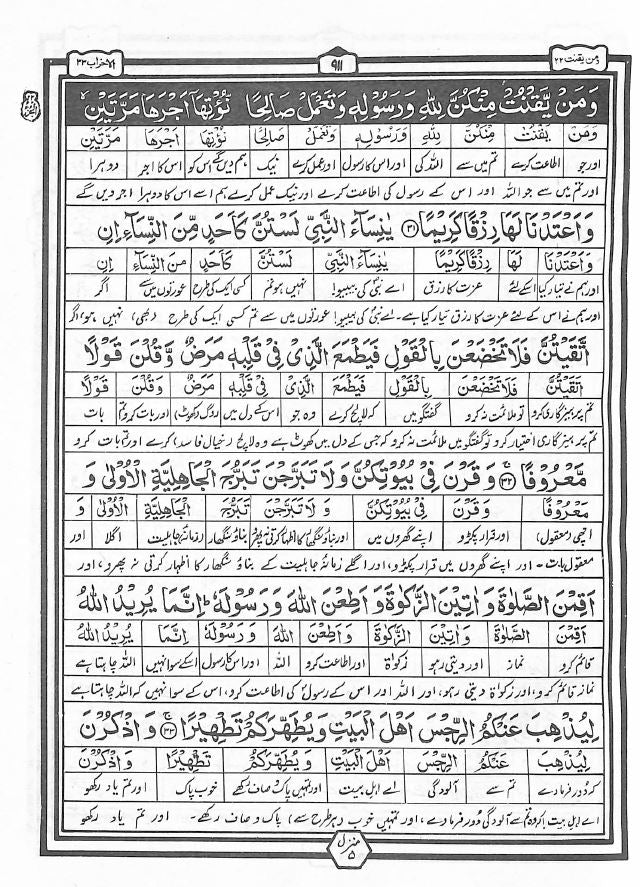 الاحزاب ٣٣
٩١١
ومن یقنت ٢٢
وَمَنْ يَّقْنُتْ مِنْكُنَّ لِلّٰهِ وَرَسُوْلِهٖ وَتَعْمَلْ صَالِحًا نُّؤْتِهَآ اَجْرَهَا مَرَّتَيْنِ ۙ
وَمَنْ يَّقْنُتْ مِنْكُنَّ لِلّٰهِ وَرَسُوْلِهٖ وَتَعْمَلْ صَالِحًا نُّؤْتِهَآ اَجْرَهَا مَرَّتَيْنِ
اور جو اطاعت کرے تم میں سے اللہ کی اور اس کا رسول اور عمل کرے نیک ہم دیں گے اس کو اس کا اجر دوہرا
اور تم میں سے جو اللہ اور اس کے رسول کی اطاعت کرے اور نیک عمل کرے ہم اسے اس کا دوہرا اجر دیں گے
وَاَعْتَدْنَا لَهَا رِزْقًا كَرِيْمًا ﴿٣١﴾ يٰنِسَآءَ النَّبِيِّ لَسْتُنَّ كَاَحَدٍ مِّنَ النِّسَآءِ اِنِ
وَاَعْتَدْنَا لَهَا رِزْقًا كَرِيْمًا يٰنِسَآءَ النَّبِيِّ لَسْتُنَّ كَاَحَدٍ مِّنَ النِّسَآءِ اِنِ
اور ہم نے تیار کیا اس کے لئے عزت کا رزق اے نبی کی بیبیو! نہیں ہو تم کسی ایک کی طرح عورتوں میں سے اگر
اور ہم نے اس کے لئے عزت کا رزق تیار کیا ہے۔ اے نبی کی بیبیو! عورتوں میں سے تم کسی ایک کی طرح (بھی) نہیں ہو، اگر
اتَّقَيْتُنَّ فَلَا تَخْضَعْنَ بِالْقَوْلِ فَيَطْمَعَ الَّذِيْ فِيْ قَلْبِهٖ مَرَضٌ وَّقُلْنَ قَوْلًا
اتَّقَيْتُنَّ فَلَا تَخْضَعْنَ بِالْقَوْلِ فَيَطْمَعَ الَّذِيْ فِيْ قَلْبِهٖ مَرَضٌ وَّقُلْنَ قَوْلًا
تم پرہیزگاری کرو تو ملائمت نہ کرو گفتگو میں کہ لالچ کرے وہ جو اس کے دل میں روگ (کھوٹ) اور بات کرو تم بات
تم پرہیزگاری اختیار کرو تو گفتگو میں ملائمت نہ کرو کہ جس کے دل میں کھوٹ ہے وہ لالچ (خیال فاسد) کرے اور تم بات کرو
مَّعْرُوْفًا ﴿٣٢﴾ وَقَرْنَ فِيْ بُيُوْتِكُنَّ وَلَا تَبَرَّجْنَ تَبَرُّجَ الْجَاهِلِيَّةِ الْاُوْلٰى وَ
مَّعْرُوْفًا وَقَرْنَ فِيْ بُيُوْتِكُنَّ وَلَا تَبَرَّجْنَ تَبَرُّجَ الْجَاهِلِيَّةِ الْاُوْلٰى وَ
اچھی (معقول) اور قرار پکڑو اپنے گھروں میں اور بناؤ سنگھار کا اظہار کرتی نہ پھرو بناؤ سنگھار (زمانۂ) جاہلیت اگلا اور
معقول بات۔ اور اپنے گھروں میں قرار پکڑو، اور اگلے زمانۂ جاہلیت کے بناؤ سنگھار کا اظہار کرتی نہ پھرو، اور
اَقِمْنَ الصَّلٰوةَ وَاٰتِيْنَ الزَّكٰوةَ وَاَطِعْنَ اللّٰهَ وَرَسُوْلَهٗ ؕ اِنَّمَا يُرِيْدُ اللّٰهُ
اَقِمْنَ الصَّلٰوةَ وَاٰتِيْنَ الزَّكٰوةَ وَاَطِعْنَ اللّٰهَ وَرَسُوْلَهٗ اِنَّمَا يُرِيْدُ اللّٰهُ
قائم کرو نماز اور دیتی رہو زکوٰۃ اور اطاعت کرو اللہ اور اس کا رسول اس کے سوا نہیں اللہ چاہتا ہے
نماز قائم کرو، اور زکوٰۃ دیتی رہو، اور اللہ اور اس کے رسول کی اطاعت کرو، اس کے سوا نہیں کہ اللہ چاہتا ہے
لِيُذْهِبَ عَنْكُمُ الرِّجْسَ اَهْلَ الْبَيْتِ وَيُطَهِّرَكُمْ تَطْهِيْرًا ﴿٣٣﴾ وَاذْكُرْنَ
لِيُذْهِبَ عَنْكُمُ الرِّجْسَ اَهْلَ الْبَيْتِ وَيُطَهِّرَكُمْ تَطْهِيْرًا وَاذْكُرْنَ
کہ دُور فرما دے تم سے آلودگی اے اہلِ بیت اور تمہیں پاک و صاف رکھے خوب پاک اور تم یاد رکھو
اے اہلِ بیت! کہ وہ تم سے آلودگی دُور فرما دے، اور تمہیں خوب (ہر طرح سے) پاک و صاف رکھے۔ اور تم یاد رکھو
منزل ٥